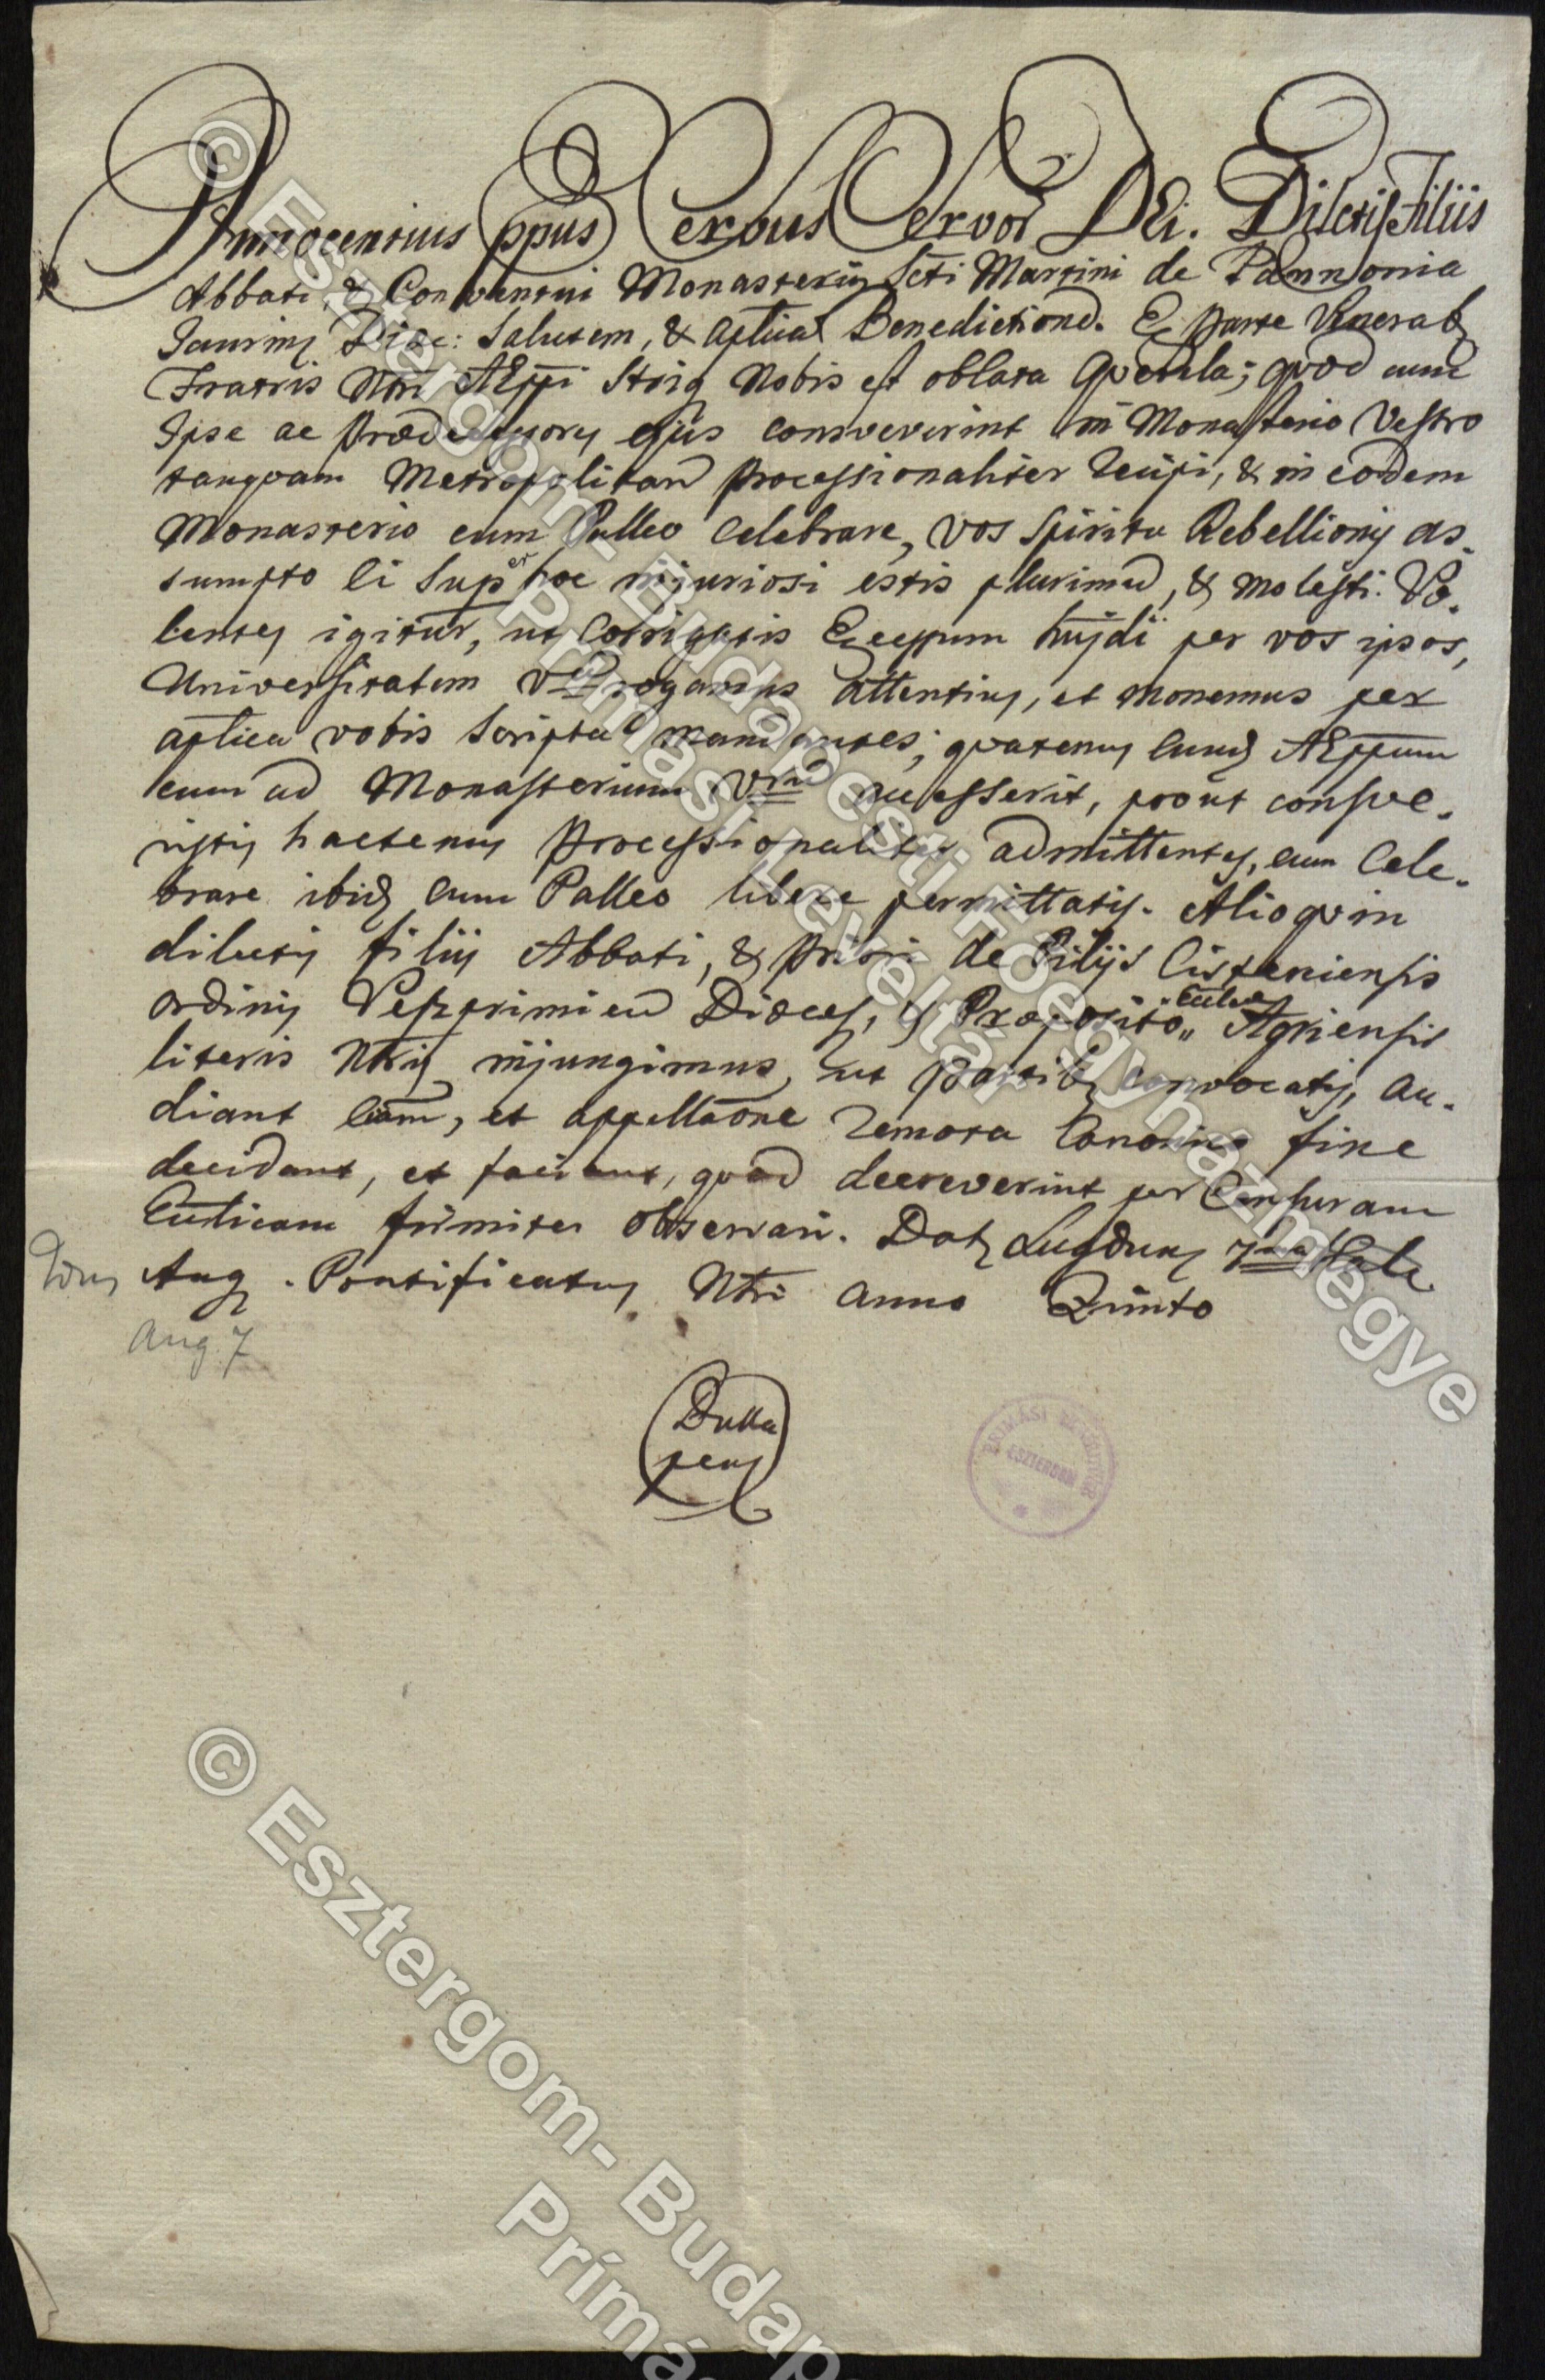 Innocentius ppus Servus Servor DEi. Dilectis Filiis
Abbati & Conventui Monasterij Scti Martini de Pannonia
Jaurin Diœc: Salutem, & aplicã Benedictionē. Ex parte Venerab
Fratris Ntri AEppi Strig Nobis est oblata Qverela; qvod cum
Ipse ac Prædecessores ejus consveverint in Monasterio Vestro
tanqvam Metropolitani processionaliter recipi, & in eodem
Monasterio cum Palleo celebrare, vos Spiritu Rebellionis as-
sumpto ei super hoc injuriosi estis plurimum, & molesti. Vo-
lentes igitur, ut corrigatis Excessum hujdi per vos ipsos,
Universitatem vram rogamus attentius, et monemus per
aplica vobis Scripta mandantes; qvatenus eund AEppum
cum ad Monasterium Vrm accesserit, prout consve-
vistis hactenus processionaliter admittentes, eum cele-
brare ibid cum Palleo libere permittatis. Alioqvin
dilectis filiis Abbati, & priori de Pilijs Cisterciensis
ordinis Veszprimien Diœces, & Præposito Eccles Agriensis
literis Ntris injungimus, ut partib convocatis, au-
diant cãm, et appellaõne remota Canonico fine
decidant, et faciant, qvod decreverint per Censuram
Ecclicam firmiter observari. Dat Lugduni 7ma Cale
Idus Aug. Pontificatus Ntri anno Quinto
Aug 7
Dulla
pens
PRIMÁSI LEVÉLTÁR
ESZTERGOM
© Esztergom- Budapesti Főegyházmegye
Prímási Levéltár
© Esztergom- Budap
Prímá